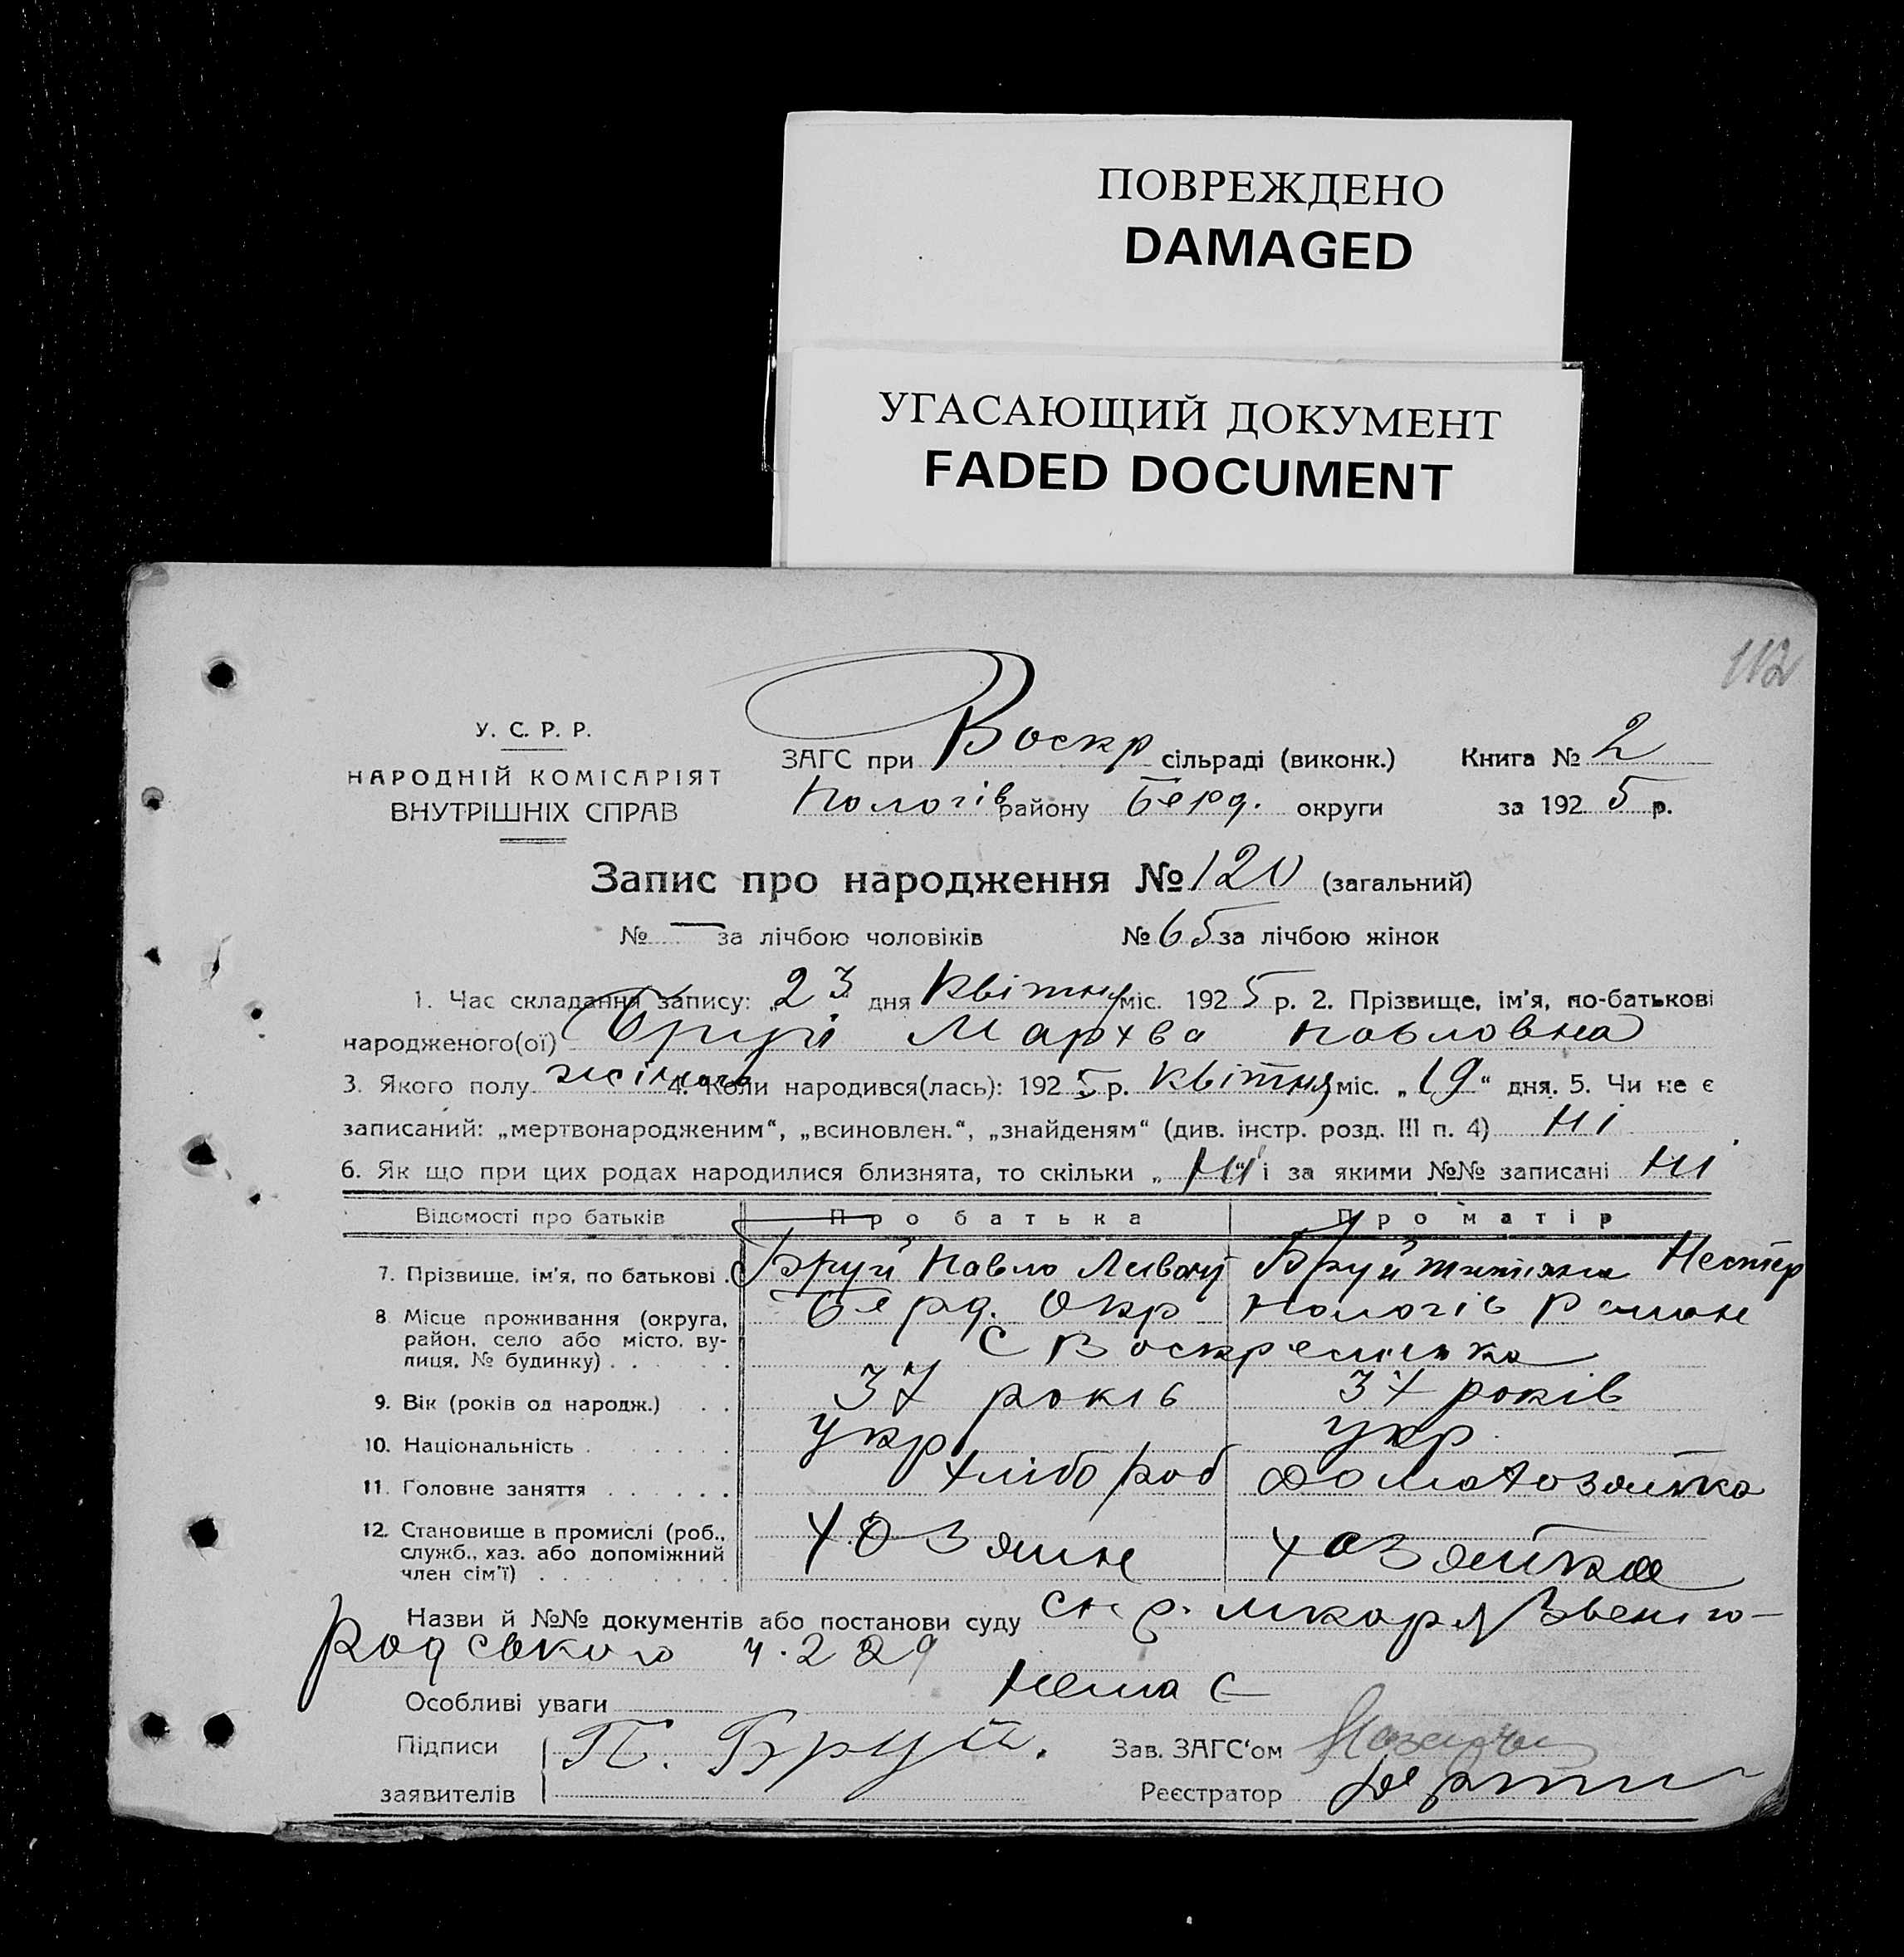 ПОВРЕЖДЕНО
DAMAGED
УГАСАЮЩИЙ ДОКУМЕНТ
FADED DOCUMENT
112
У. С. Р. Р.
НАРОДНІЙ КОМІСАРІЯТ
ВНУТРІШНІХ СПРАВ
ЗАГС при Воскр сільраді (виконк.) Книга № 2
Пологів району Берд. округи за 1925 р.
Запис про народження № 120 (загальний)
№ — за лічбою чоловіків № 65 за лічбою жінок
1. Час складання запису: „23 дня Квітня міс. 1925 р. 2. Прізвище, ім'я, по-батькові
народженого(ої) Бруй Мархва Павловна
3. Якого полу жіного 4. Коли народився(лась): 1925 р. Квітня міс. „19“ дня. 5. Чи не є
записаний: „мертвонародженим“, „всиновлен.“, „знайденям“ (див. інстр. розд. III п. 4) Ні
6. Як що при цих родах народилися близнята, то скільки „ні“ і за якими №№ записані ні
Відомості про батьків Про батька Про матір
7. Прізвище, ім'я, по батькові . Бруй Павло Бруй Нестер
8. Місце проживання (округа, район, село або місто, вулиця, № будинку) . . Берд. Окр Пологів Район
С Воскресенка
9. Вік (років од народж.) . . 37 років 37 років
10. Національність . укр укр.
11. Головне заняття . хлібороб домохозяйка
12. Становище в промислі (роб., служб., хаз. або допоміжний член сім'ї) . хозяин хозяйка
Назви й №№ документів або постанови суду Звениго-
родського ч. 229
Особливі уваги Нема Є
Підписи П. Бруй. Зав. ЗАГС'ом
заявителів Реєстратор